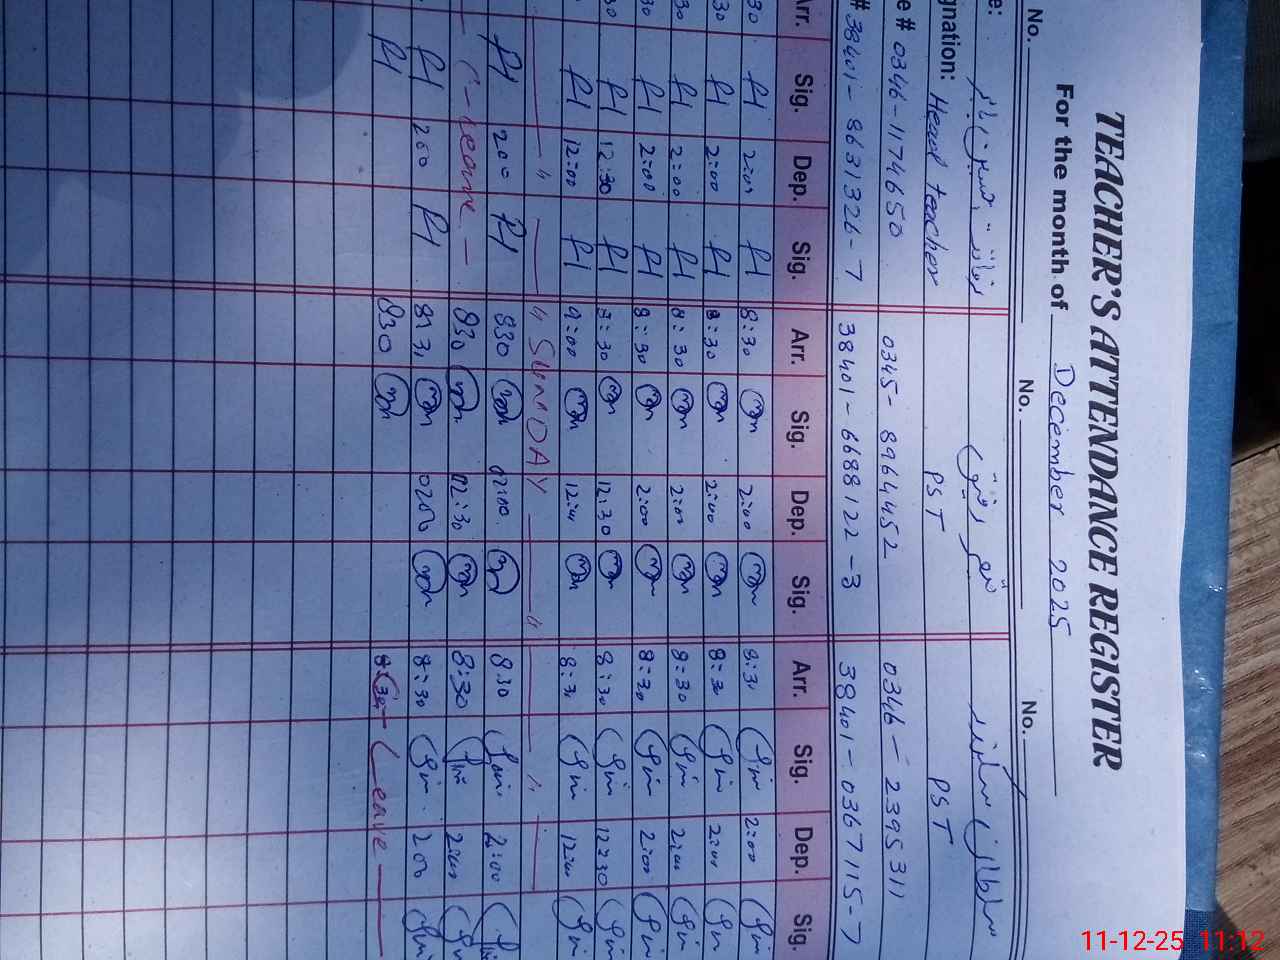 TEACHER'S ATTENDANCE REGISTER
For the month of December 2025
No. No. No.
نواز شیریں رفیق سلطان سکندر
gnation: Head teacher PST PST
e # 0346-1174650 0345-8964452 0346-2395311
# 38401-8631326-7 38401-6688122-3 38401-0367115-7
Arr. Sig. Dep. Sig. Arr. Sig. Dep. Sig. Arr. Sig. Dep. Sig.
30 2:00 8:30 2:00 8:30 2:00
30 2:00 8:30 2:00 8:30 2:00
30 2:00 8:30 2:00 8:30 2:00
30 2:00 8:30 2:00 8:30 2:00
30 12:30 8:30 12:30 8:30 12:30
12:00 9:00 12:00 8:30 12:00
SUNNDAY
200 830 02:00 830 2:00
C-Leave 830 02:30 8:30 2:00
200 8:30 0200 8:30 200
830 8:30 Leave
11-12-25 11:12